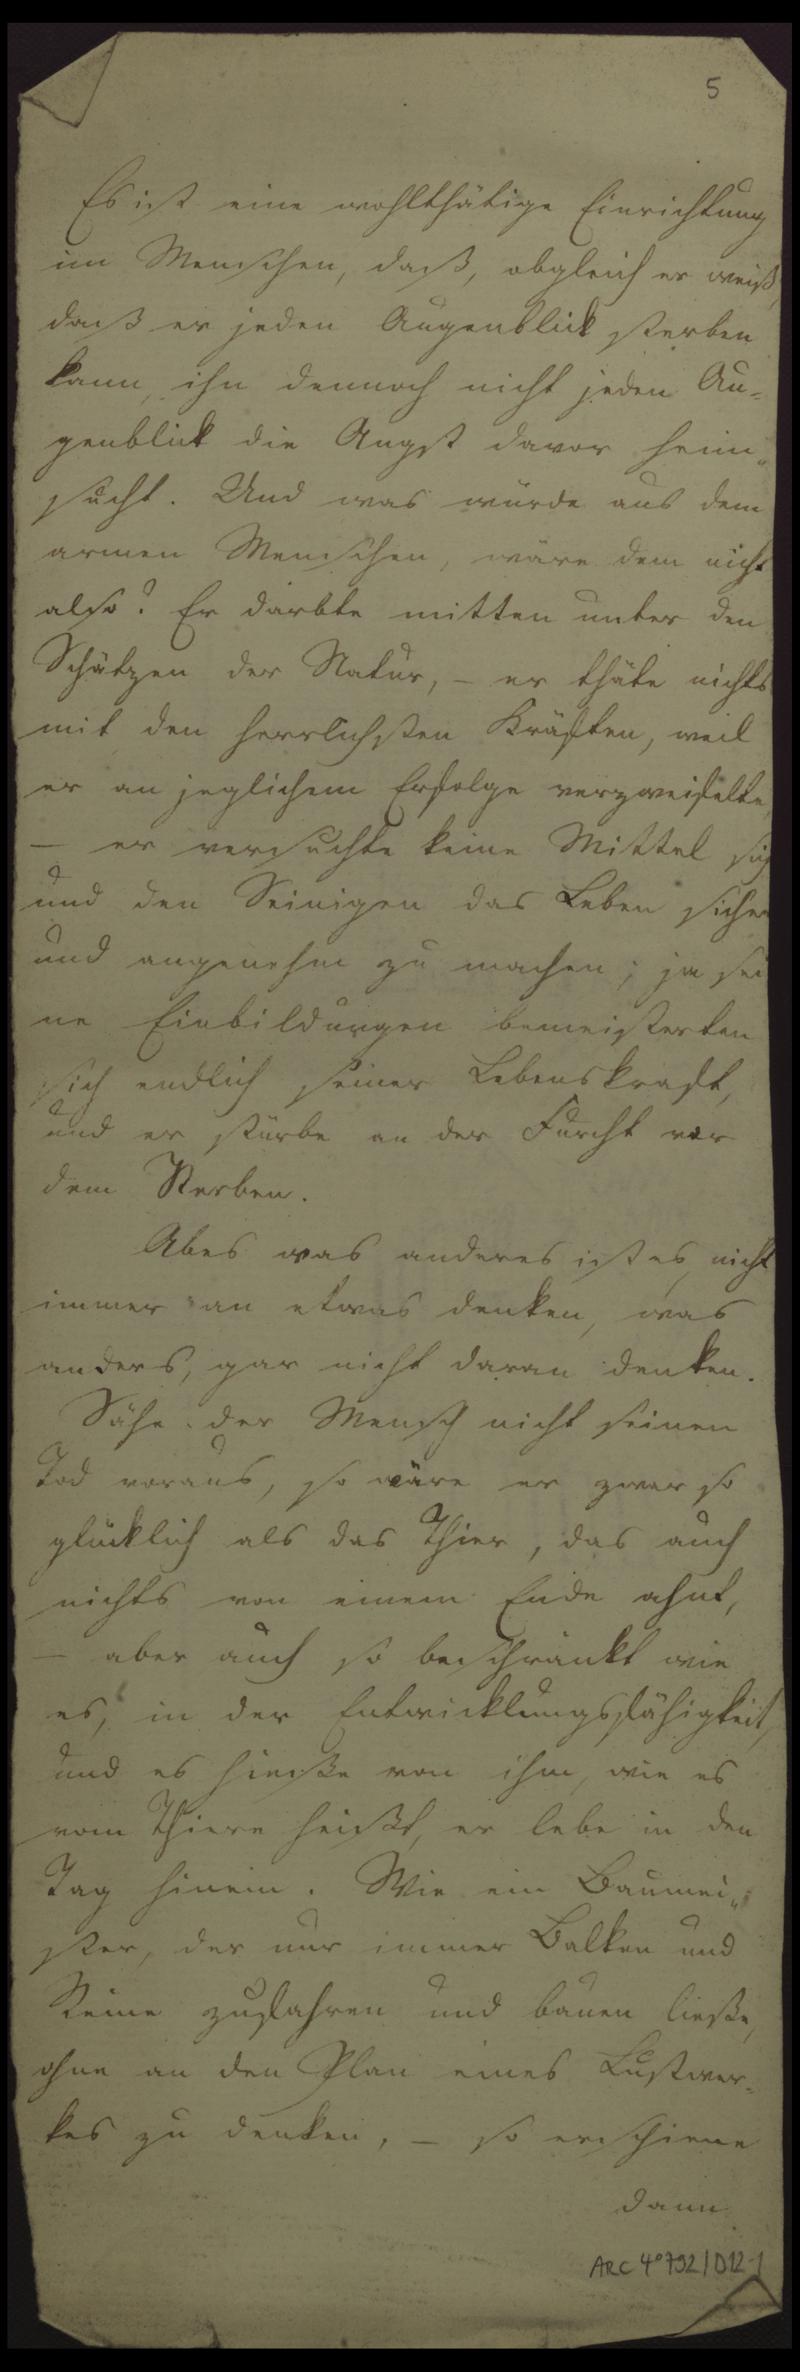 5
Es ist eine wohlthätige Einrichtung
im Menschen, daß, obgleich er weiß,
daß er jeden Augenblick sterben
kann, ihn dennoch nicht jeden Au-
genblick die Angst davor heim-
sucht. Und was würde aus dem
armen Menschen, wäre dem nicht
also? Er darbte mitten unter den
Schätzen der Natur, – er thäte nichts
mit den herrlichsten Kräften, weil
er an jeglichem Erfolge verzweifelte,
– er versuchte keine Mittel sich
und den Seinigen das Leben sicher
und angenehm zu machen; ja sei
ne Einbildungen bemeisterten
sich endlich seiner Lebenskraft,
und er stürbe an der Furcht vor
dem Sterben.
Aber was anderes ist es, nicht
immer an etwas denken, was
anders, gar nicht daran denken.
Sähe der Mensch nicht seinen
Tod voraus, so wäre er zwar so
glücklich als das Thier, das auch
nichts von einem Ende ahnt,
– aber auch so beschränkt wie
es, in der Entwicklungsfähigkeit,
und es hieße von ihm, wie es
vom Thiere heißt, er lebe in den
Tag hinein. Wie ein Baumei-
ster, der nur immer Balken und
Steine zufahren und bauen ließe,
ohne an den Plan eines Lustwer-
kes zu denken, – so erschiene
dann
ARC 4° 792/D12-1